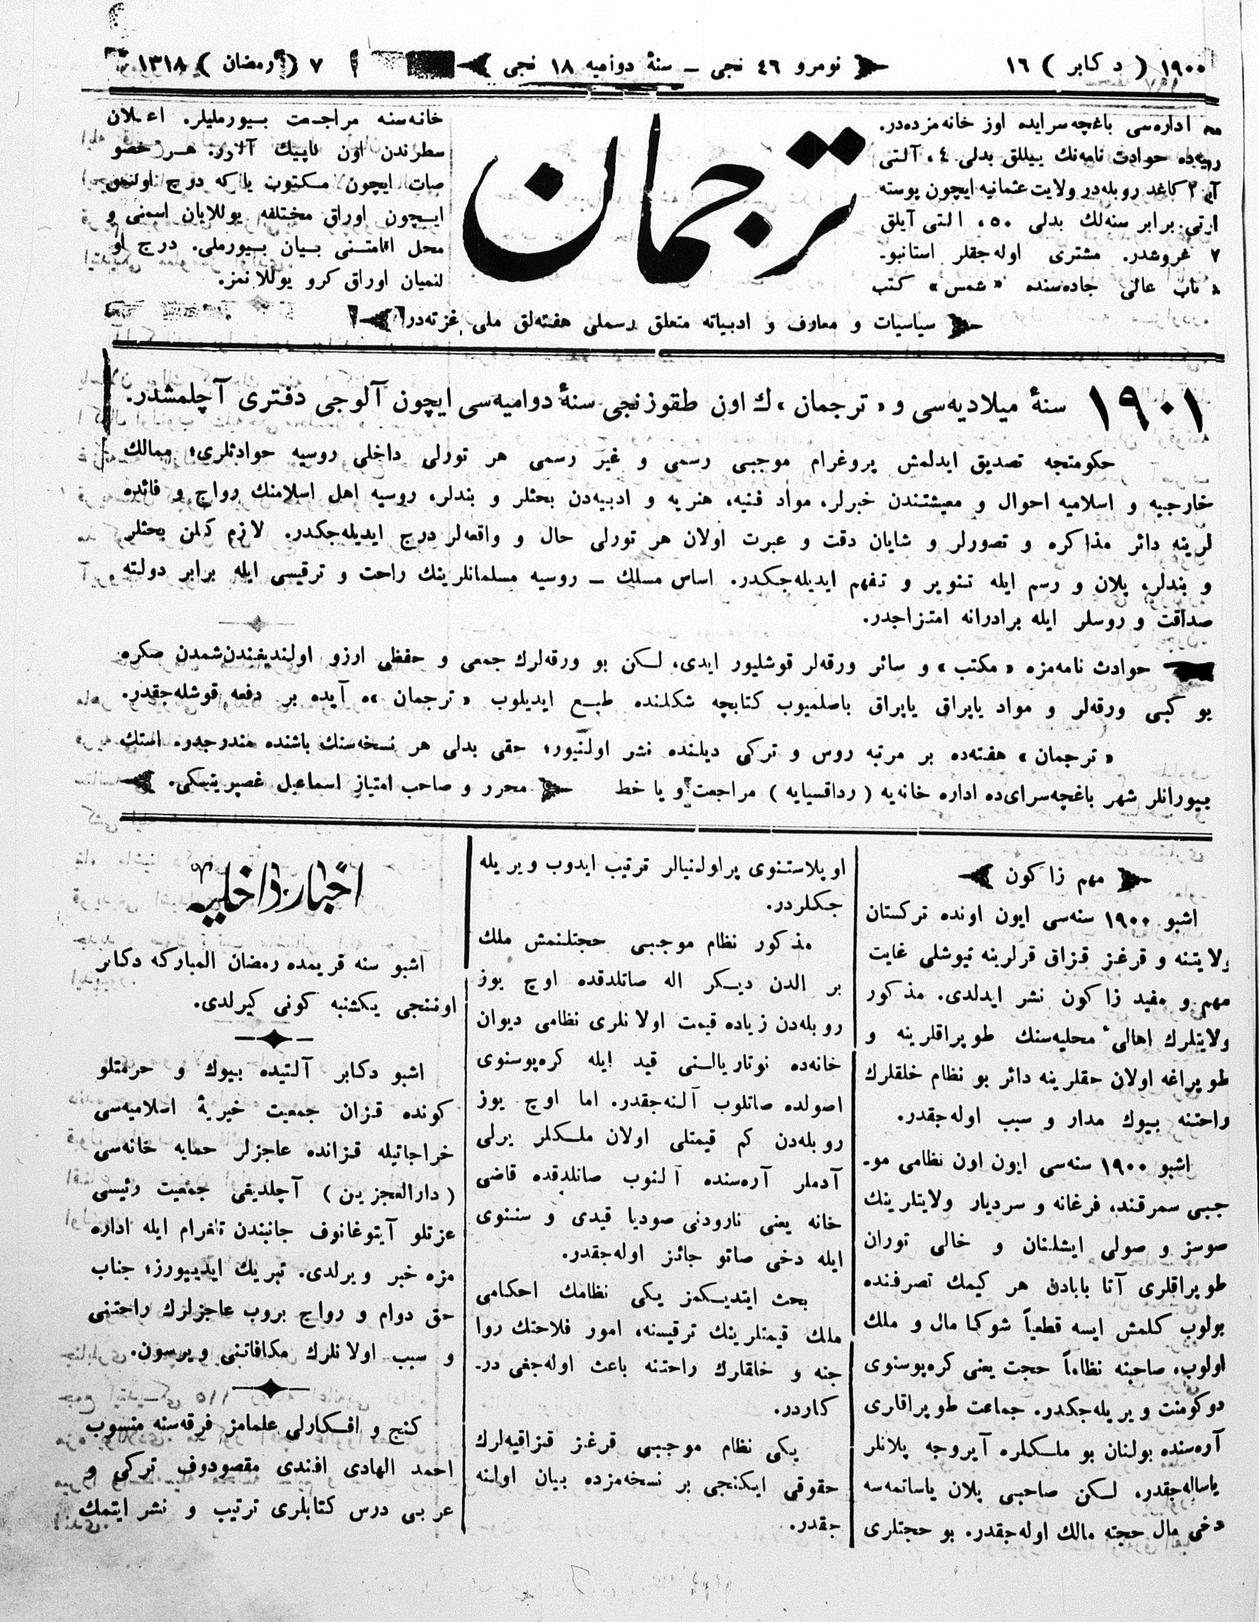 ١٩٠٠ ( دكابر ) ١٦
نومرو ٤٦ نجی ــ سنهٔ دوامیه ١٨ نجی
٧ ( رمضان ) ١٣١٨
اداره‌سی باغچه سرایده اوز خانه مزده‌در.
حوادث نامه‌نك ییللق بدلی ٤، آلتی
كاغد روبله‌در ولایت عثمانیه ایچون پوسته
برابر سنه‌لك بدلی ٥٠، التی آیلق
غروشدر. مشتری اوله‌جقلر استانبو-
باب عالی جاده‌سنده « شمس » كتب
ترجمان
خانه‌سنه مراجعت بیورملیلر. اعلان
سطرندن اون آلنور. هر خصو
صات ایچون مكتوب یا كه درج اولنمق
ایچون اوراق مختلفه یوللایان اسمنی و
محل اقامتنی بیان بیورملی. درج او
لنمیان اوراق كرو یوللانمز.
سیاسیات و معارف و ادبیاته متعلق رسملی هفته‌لق ملی غزته‌در
١٩٠١ سنهٔ میلادیه‌سی و « ترجمان » ك اون طقوزنجی سنهٔ دوامیه‌سی ایچون آلوجی دفتری آچلمشدر.
حكومتجه تصدیق ایدلمش پروغرام موجبی رسمی و غیر رسمی هر تورلی داخلی روسیه حوادثلری؛ ممالك
خارجیه و اسلامیه احوال و معیشتندن خبرلر، مواد فنیه، هنریه و ادبیه‌دن بحثلر و بندلر، روسیه اهل اسلامنك رواج و فائده
لرینه دائر مذاكره و تصورلر و شایان دقت و عبرت اولان هر تورلی حال و واقعه‌لر درج ایدیله‌جكدر. لازم كلن بحثلر
و بندلر، پلان و رسم ایله تنویر و تفهم ایدیله‌جكدر. اساس مسلك ــ روسیه مسلمانلرینك راحت و ترقیسی ایله برابر دولته
صداقت و روسلر ایله برادرانه امتزاجدر.
حوادث نامه‌مزه « مكتب » و سائر ورقه‌لر قوشلیور ایدی، لكن بو ورقه‌لرك جمعی و حفظی ارزو اولندیغندن شمدن صكره
بو كبی ورقه‌لر و مواد یاپراق یاپراق باصلمیوب كتابچه شكلنده طبع ایدیلوب « ترجمان » ه آیده بر دفعه قوشله‌جقدر.
« ترجمان » هفته‌ده بر مرتبه روس و تركی دیلنده نشر اولنیور؛ حقی بدلی هر نسخه‌سنك باشنده مندرجدر. استك
بیورانلر شهر باغچه‌سرای‌ده اداره خانه‌یه ( رداقسیایه ) مراجعت و یا خط
محرر و صاحب امتیاز اسماعیل غصپرینسكی.
مهم زاكون
اشبو ١٩٠٠ سنه‌سی ایون اونده تركستان
ولایتنه و قرغز قزاق قرلرینه تیوشلی غایت
مهم و مفید زاكون نشر ایدلدی. مذكور
ولایتلرك اهالیٔ محلیه‌سنك طوپراقلرینه و
طوپراغه اولان حقلرینه دائر بو نظام خلقلرك
راحتنه بیوك مدار و سبب اوله‌جقدر.
اشبو ١٩٠٠ سنه‌سی ایون اون نظامی مو-
جبی سمرقند، فرغانه و سردیار ولایتلرینك
صوسز و صولی ایشلنان و خالی توران
طوپراقلری آتا بابادن هر كیمك تصرفنده
بولوب كلمش ایسه قطعیاً شوكا مال و ملك
اولوب، صاحبنه نظاماً حجت یعنی كره‌پوسنوی
دوكومنت ویریله‌جكدر. جماعت طوپراقلری
آره‌سنده بولنان بو ملكلره آیروجه پلانلر
یاساله‌جقدر. لكن صاحبی پلان یاساتمه‌سه
دخی مال حجته مالك اوله‌جقدر. بو حجتلری
اویلاستنوی پراولنیالر ترتیب ایدوب ویریله
جكلردر.
مذكور نظام موجبی حجتلنمش ملك
بر الدن دیكر اله صاتلدقده اوچ یوز
روبله‌دن زیاده قیمت اولانلری نظامی دیوان
خانه‌ده نوتاریالنی قید ایله كره‌پوسنوی
اصولده صاتلوب آلنه‌جقدر. اما اوچ یوز
روبله‌دن كم قیمتلی اولان ملكلر یرلی
آدملر آره‌سنده آلنوب صاتلدقده قاضی
خانه یعنی نارودنی صودیا قیدی و سننوی
ایله دخی صاتو جائز اوله‌جقدر.
بحث ایتدیكمز یكی نظامك احكامی
ملك قیمتلرینك ترقیسنه، امور فلاحتك روا
جنه و خلقلرك راحتنه باعث اوله‌جغی در-
كاردر.
یكی نظام موجبی قرغز قزاقیه‌لرك
حقوقی ایكنجی بر نسخه‌مزده بیان اولنه
جقدر.
اخبار داخلیه
اشبو سنه قریمده رمضان المباركه دكابر
اوننجی یكشنبه كونی كیرلدی.
اشبو دكابر آلتیده بیوك و حرمتلو
كونده قزان جمعیت خیریهٔ اسلامیه‌سی
خراجاتیله قزانده عاجزلر حمایه خانه‌سی
( دارالعجزین ) آچلدیغی جمعیت رئیسی
عزتلو آیتوغانوف جانبندن تلغرام ایله اداره
مزه خبر ویرلدی. تبریك ایدییورز؛ جناب
حق دوام و رواج بروب عاجزلرك راحتنی
و سبب اولانلرك مكافاتنی ویرسون.
كنج و افكارلی علمامز فرقه‌سنه منسوب
احمد الهادی افندی مقصودوف تركی و
عربی درس كتابلری ترتیب و نشر ایتمك